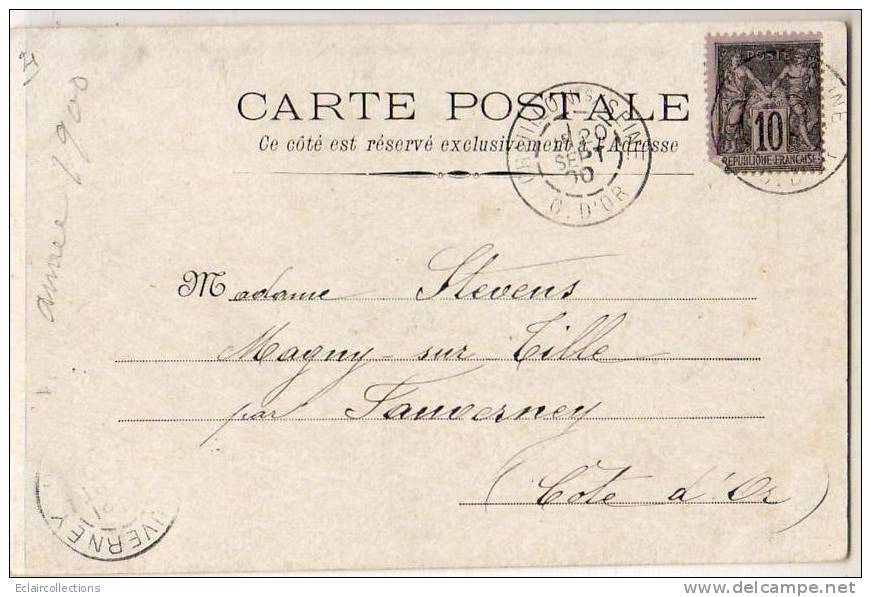 année 1900
CARTE POSTALE
Ce côté est réservé exclusivement à l'Adresse
POSTE
10
REPUBLIQUE FRANÇAISE
SEINE
C. D'OR
SUR SEINE
20
SEPT
00
C. D'OR
Madame Stevens
Magny-sur Tille
par Fauverney
(Côte d'Or)
UVERNEY
Eclaircollections
www.delcampe.net